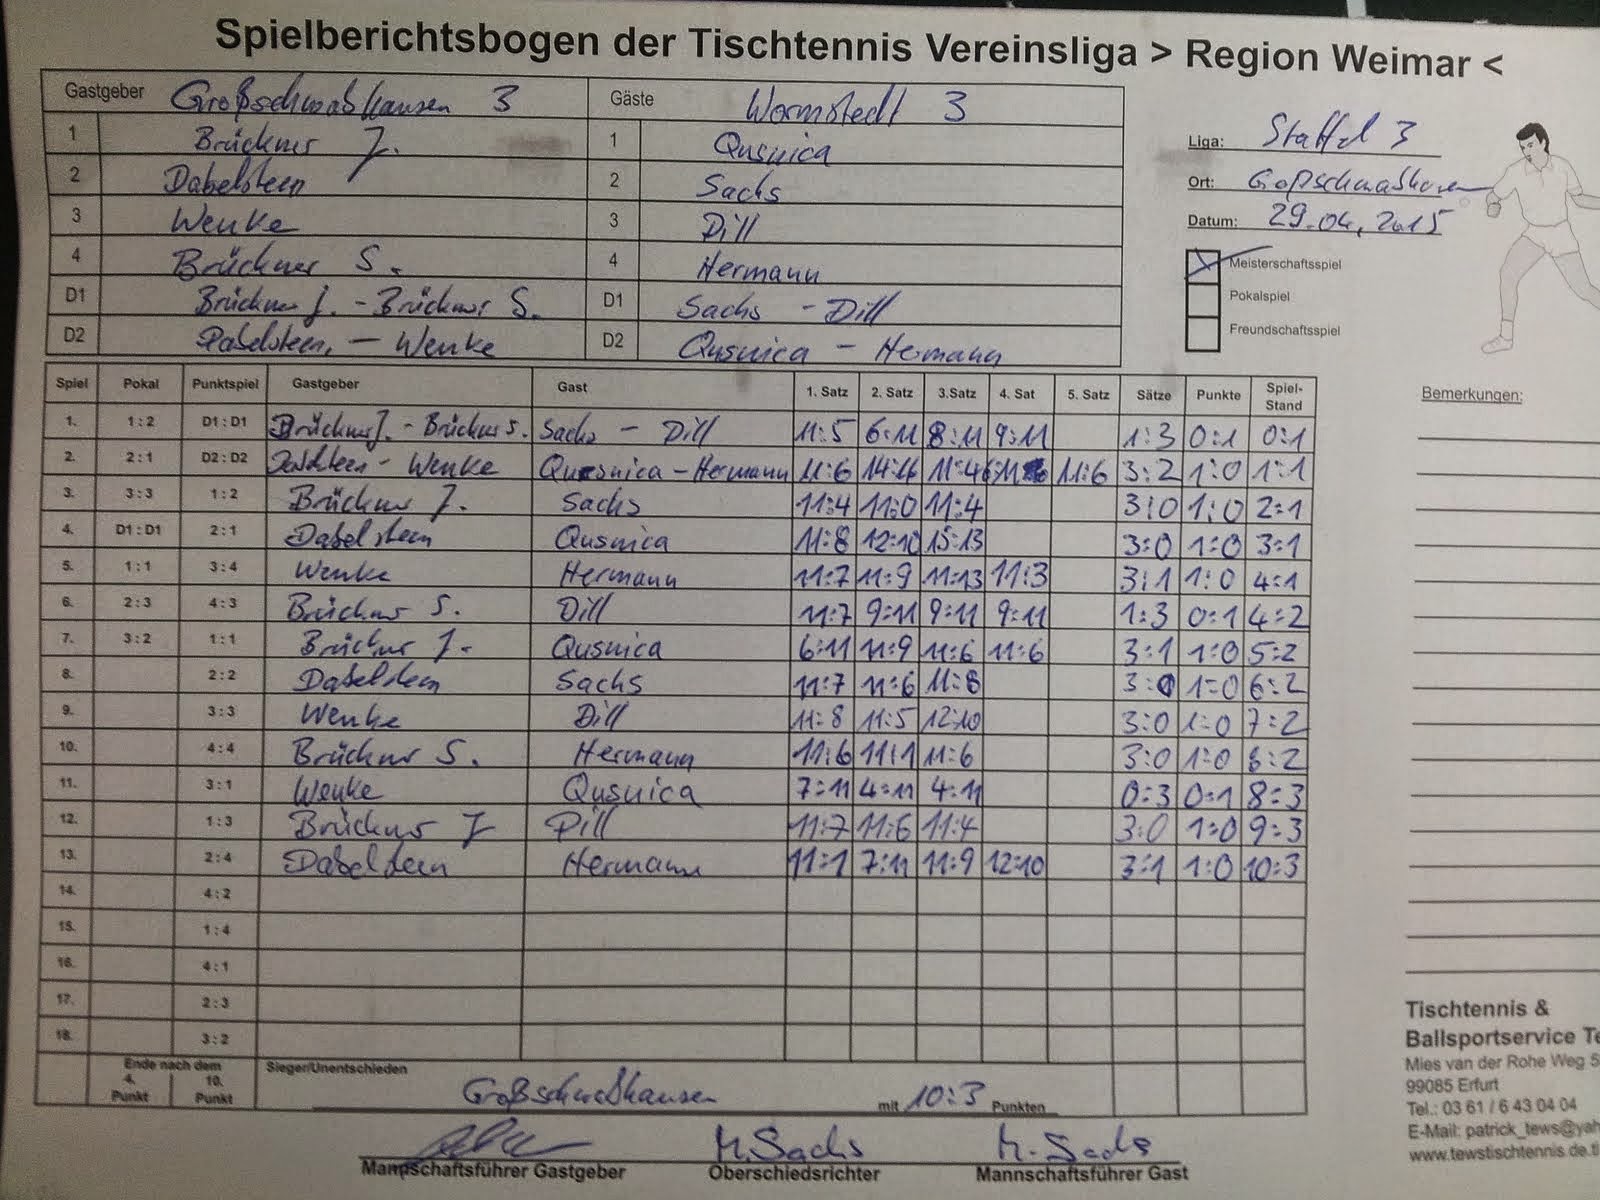 Spielberichtsbogen der Tischtennis Vereinsliga > Region Weimar <
Gastgeber Großschwabhausen 3 Gäste Wormstedt 3
1 Brückner J. 1 Qusnica
2 Dabelsteen 2 Sachs
3 Wenke 3 Dill
4 Brückner S. 4 Hermann
D1 Brückner J. - Brückner S. D1 Sachs - Dill
D2 Dabelsteen, - Wenke D2 Qusnica - Hermann
Liga: Staffel 3
Ort: Großschwabhausen
Datum: 29.04.2015
Meisterschaftsspiel
Pokalspiel
Freundschaftsspiel
Bemerkungen:
Spiel Pokal Punktspiel Gastgeber Gast 1. Satz 2. Satz 3.Satz 4. Sat 5. Satz Sätze Punkte Spiel-Stand
1. 1:2 D1:D1 Brückner J. - Brückner S. Sachs - Dill 11:5 6:11 8:11 9:11 1:3 0:1 0:1
2. 2:1 D2:D2 Dabelsteen - Wenke Qusnica - Hermann 11:6 11:4 11:6 3:2 1:0 1:1
3. 3:3 1:2 Brückner J. Sachs 11:4 11:0 11:4 3:0 1:0 2:1
4. D1:D1 2:1 Dabelsteen Qusnica 11:8 12:10 15:13 3:0 1:0 3:1
5. 1:1 3:4 Wenke Hermann 11:7 11:9 11:13 11:3 3:1 1:0 4:1
6. 2:3 4:3 Brückner S. Dill 11:7 9:11 9:11 9:11 1:3 0:1 4:2
7. 3:2 1:1 Brückner J. Qusnica 6:11 11:9 11:6 11:6 3:1 1:0 5:2
8. 2:2 Dabelsteen Sachs 11:7 11:6 11:8 3:0 1:0 6:2
9. 3:3 Wenke Dill 11:8 11:5 12:10 3:0 1:0 7:2
10. 4:4 Brückner S. Hermann 11:6 11:1 11:6 3:0 1:0 8:2
11. 3:1 Wenke Qusnica 7:11 4:11 4:11 0:3 0:1 8:3
12. 1:3 Brückner J Dill 11:7 11:6 11:4 3:0 1:0 9:3
13. 2:4 Dabelsteen Hermann 11:1 7:11 11:9 12:10 3:1 1:0 10:3
14. 4:2
15. 1:4
16. 4:1
17. 2:3
18. 3:2
Ende nach dem 4. Punkt 10. Punkt Sieger/Unentschieden Großschwabhausen mit 10:3 Punkten
M. Sachs M. Sachs
Mannschaftsführer Gastgeber Oberschiedsrichter Mannschaftsführer Gast
Tischtennis &
Ballsportservice Te
Mies van der Rohe Weg 5
99085 Erfurt
Tel.: 03 61 / 6 43 04 04
E-Mail: patrick_tews@yah
www.tewstischtennis.de.tl